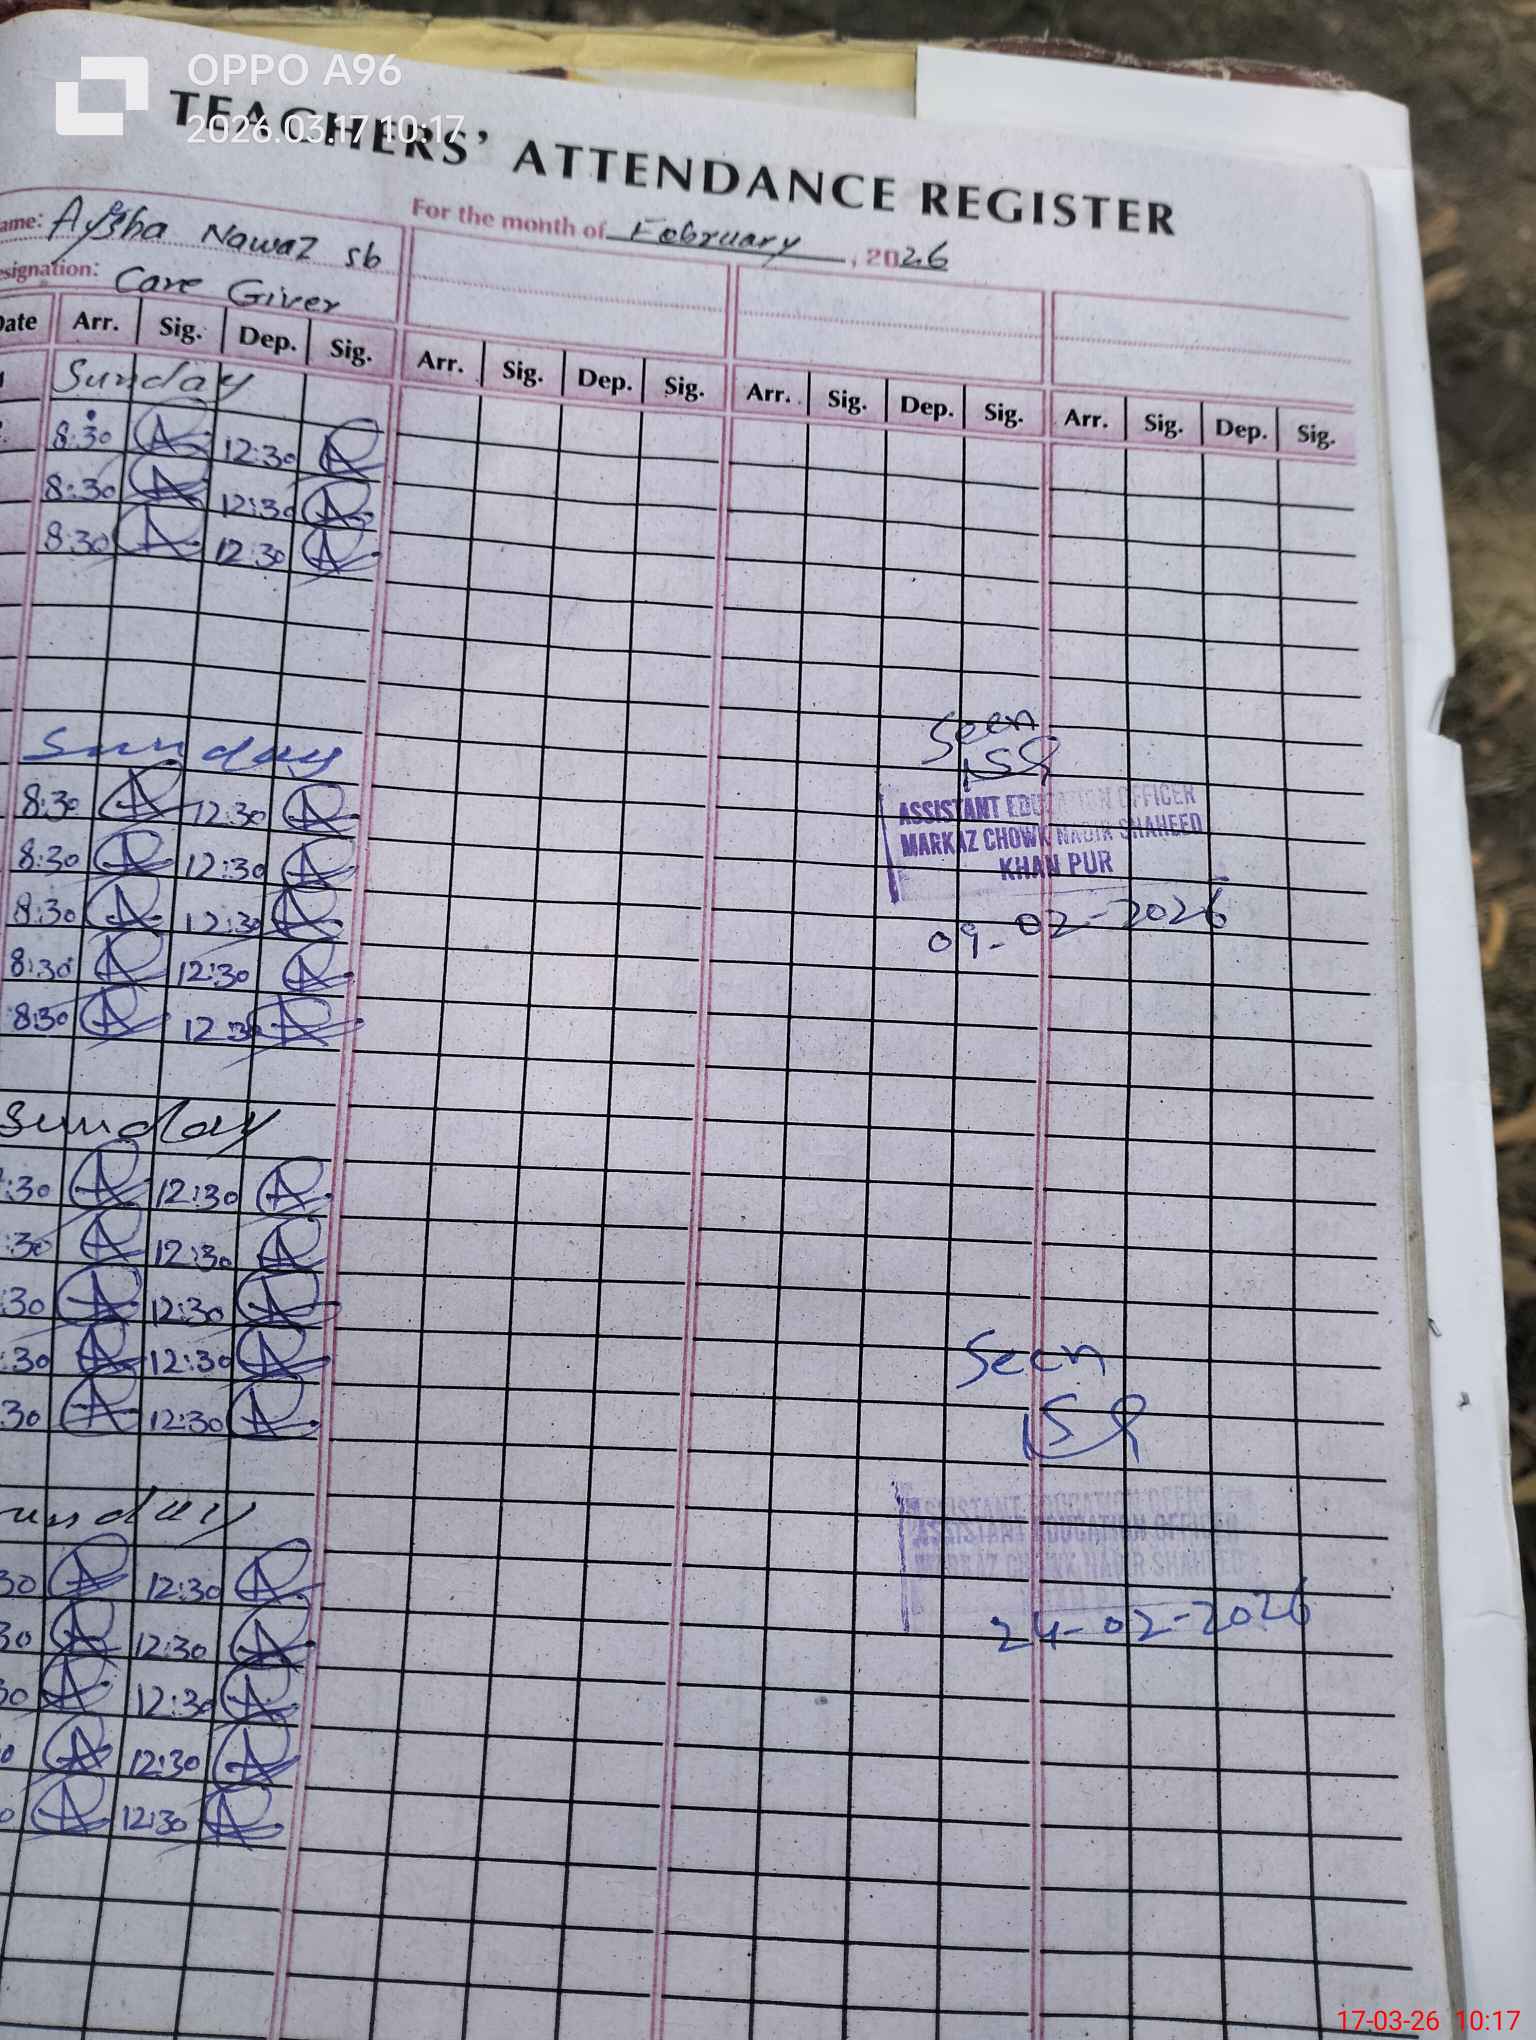 OPPO A96
2026.03.17 10:17
TEACHERS' ATTENDANCE REGISTER
ame: Aysha Nawaz sb
For the month of February, 2026
esignation: Care Giver
Date Arr. Sig. Dep. Sig. Arr. Sig. Dep. Sig. Arr. Sig. Dep. Sig. Arr. Sig. Dep. Sig.
1 Sunday
8:30 12:30
8:30 12:30
8:30 12:30
Sunday
8:30 12:30
8:30 12:30
8:30 12:30
8:30 12:30
8:30 12:30
Seen
ASSISTANT EDUCATION OFFICER
MARKAZ CHOWK NADIR SHAHEED
KHAN PUR
09-02-2026
Sunday
:30 12:30
:30 12:30
:30 12:30
:30 12:30
30 12:30
Seen
unday
30 12:30
30 12:30
30 12:30
0 12:30
0 12:30
ASSISTANT EDUCATION OFFICER
MARKAZ CHOWK NADIR SHAHEED
24-02-2026
17-03-26 10:17